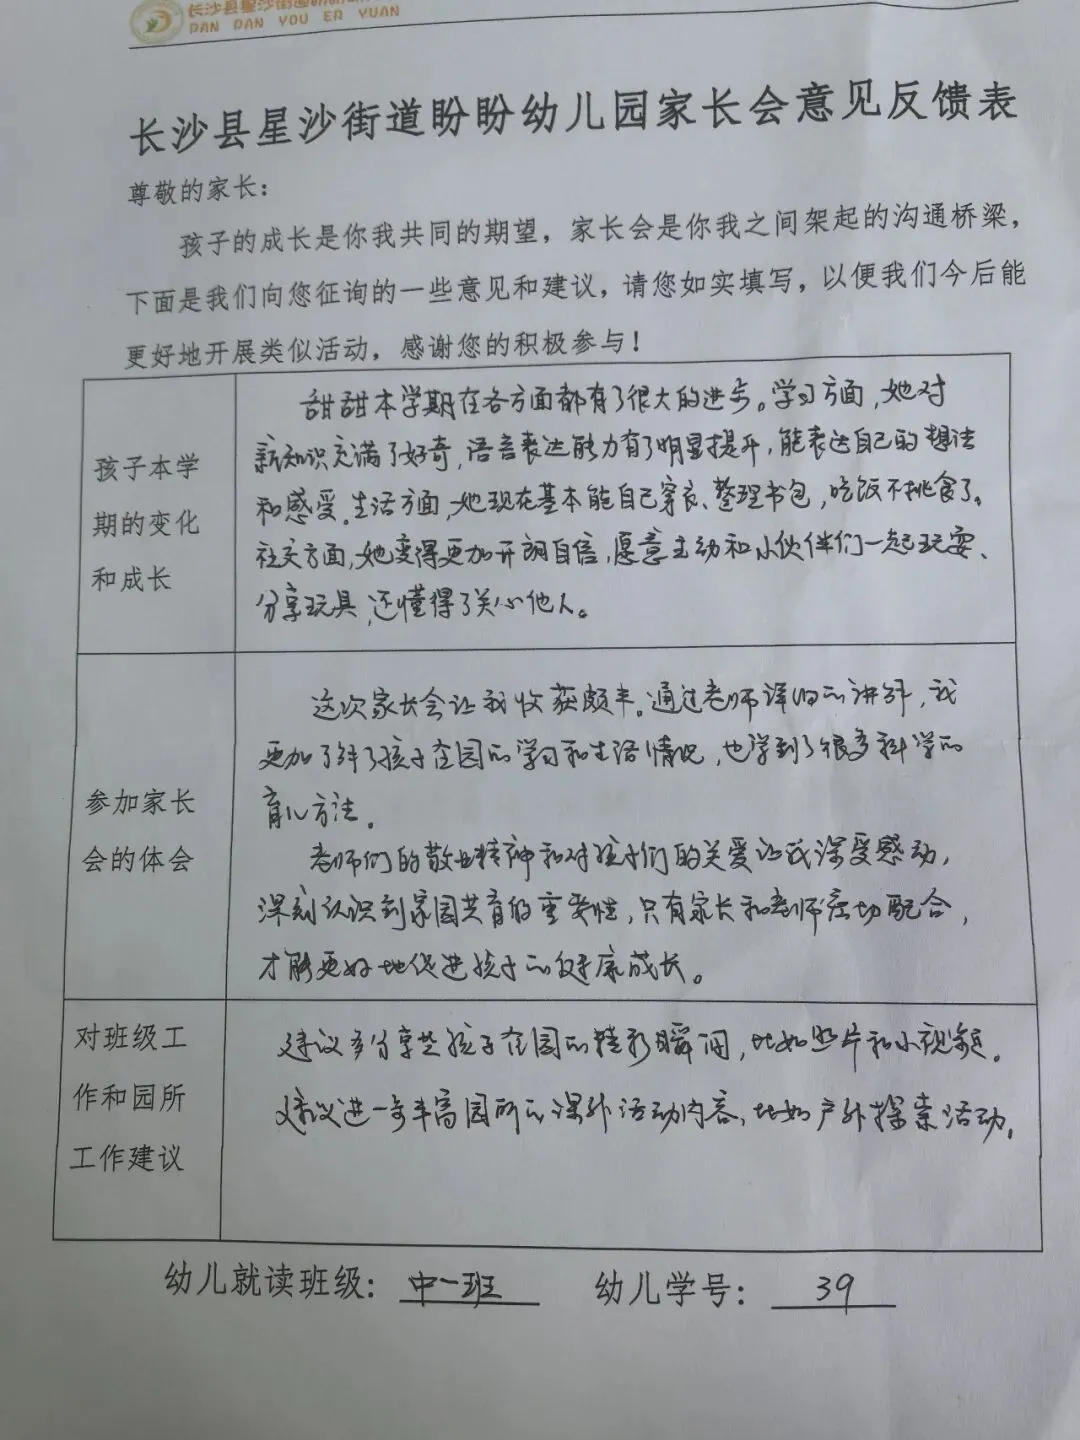 长沙县星沙街道
PAN PAN YOU ER YUAN
长沙县星沙街道盼盼幼儿园家长会意见反馈表
尊敬的家长：
孩子的成长是你我共同的期望，家长会是你我之间架起的沟通桥梁，
下面是我们向您征询的一些意见和建议，请您如实填写，以便我们今后能
更好地开展类似活动，感谢您的积极参与！
孩子本学
期的变化
和成长
甜甜本学期在各方面都有了很大的进步。学习方面，她对
新知识充满了好奇，语言表达能力有了明显提升，能表达自己的想法
和感受。生活方面，她现在基本能自己穿衣、整理书包，吃饭不挑食了。
社交方面，她变得更加开朗自信，愿意主动和小伙伴们一起玩耍、
分享玩具，还懂得了关心他人。
参加家长
会的体会
这次家长会让我收获颇丰。通过老师详细的讲解，我
更加了解了孩子在园的学习和生活情况，也学到了很多科学的
育儿方法。
老师们的敬业精神和对孩子们的关爱让我深受感动，
深刻认识到家园共育的重要性，只有家长和老师密切配合，
才能更好地促进孩子的健康成长。
对班级工
作和园所
工作建议
建议多分享些孩子在园的精彩瞬间，比如照片和小视频。
建议进一步丰富园所的课外活动内容，比如户外探索活动。
幼儿就读班级：中一班 幼儿学号：39